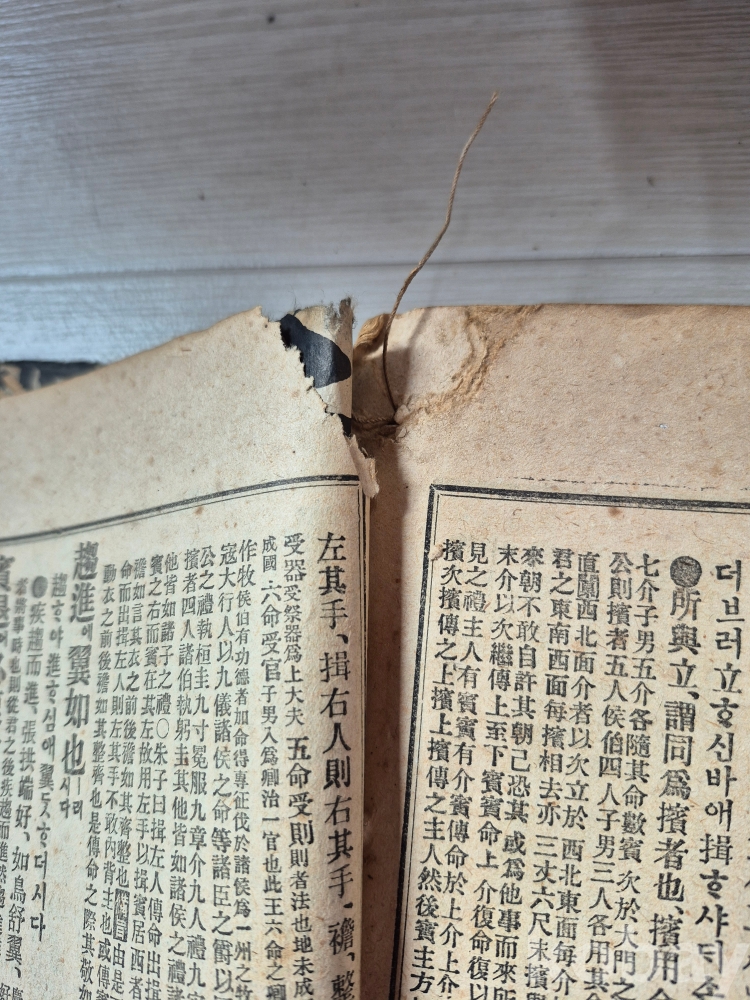 더브러立ᄒᆞ신바애揖ᄒᆞ샤ᄃᆡ
●所與立、謂同爲擯者也、擯用命
七介子男五介各隨其命數賓次於大門之
公則擯者五人侯伯四人子男三人各用其
直闑西北面介者以次立於 西北東面每介
君之東南西面每擯相去亦 三丈六尺末擯
來朝不敢自許其朝己恐其 或爲他事而來所
末介以次繼傳上至下 賓賓命上 介復命復以
見之禮主人有擯賓有介賓傳命於上介上介
擯次擯傳之上擯上擯傳之主人然後賓主方
左其手、揖右人則右其手、襜、整
受器受祭器爲上大夫 五命受則則者法也地未成
成國 六命受官子男入爲卿治一官也此王六命之卿
作牧侯伯有功德者加命得專征伐於諸侯爲一州之牧
寇大行人以九儀諸侯之命等諸臣之爵以
公之禮執桓圭九寸冕服九章介九人禮九牢
擯者四人諸伯執躬圭其他皆如諸侯之禮諸
他皆如諸子之禮○朱子曰揖左人傳命出揖
賓之右而賓在其左故用左手以揖賓居西者
襜如言其衣之前後襜如其齊整也 由是
命而出揖左人則左其手不敢內背主也或傳賓
動衣之前後襜如其整齊也是傳命之際其敬如
趨進에翼如也ㅣ러시다
趨ᄒᆞ야進ᄒᆞ심애翼ᄃᆞᆺᄒᆞ더시다
●疾趨而進、張拱端好、如鳥舒翼、
也則從君之後疾趨而進然